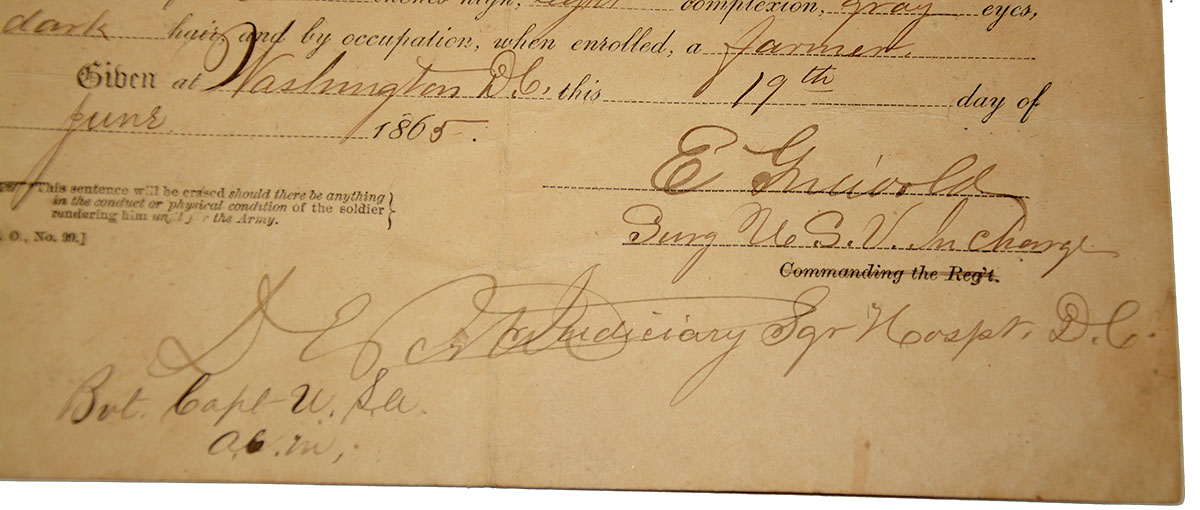 high, light complexion, gray eyes,
dark hair, and by occupation, when enrolled, a farmer.
Given at Washington D.C. this 19th day of
June 1865.
E Griswold
This sentence will be erased should there be anything
in the conduct or physical condition of the soldier
rendering him unfit for the Army.
Surg U.S.V. In charge
O., No. 99.]
Commanding the Reg't.
Judiciary Sqr Hospt. D.C.
Bvt. Capt U.S.A.
A.C.M.